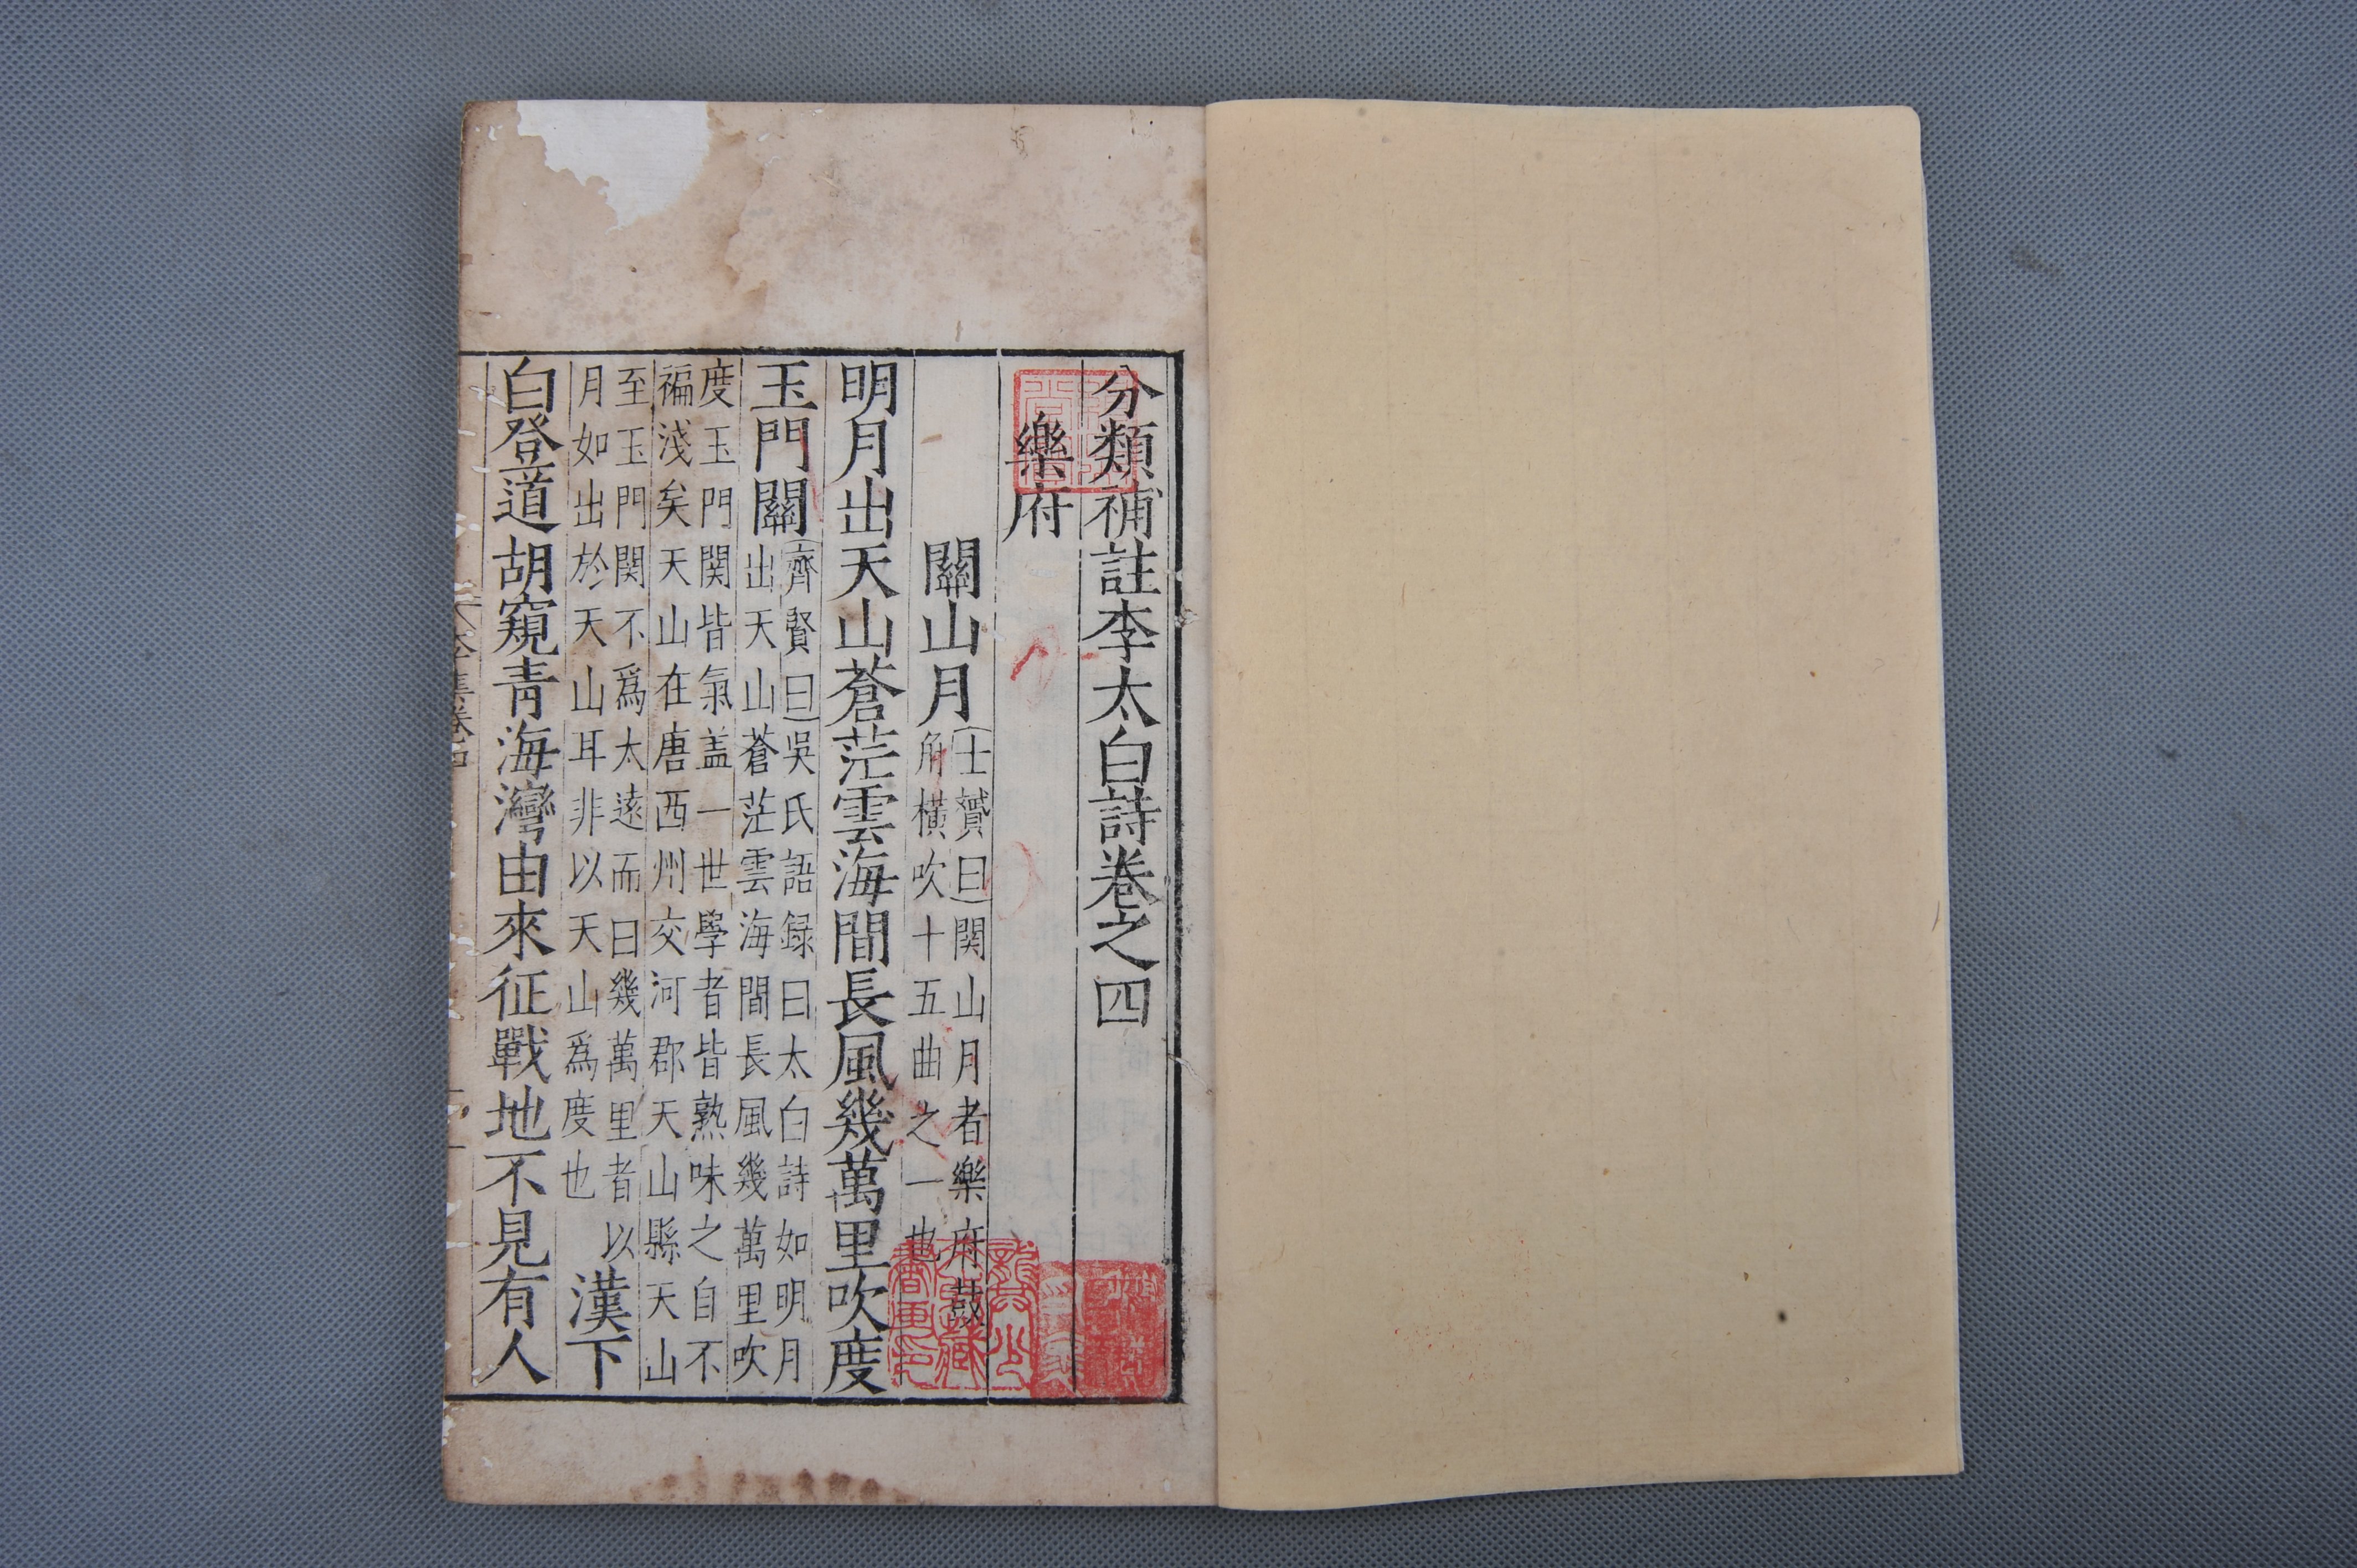 分類補註李太白詩卷之四
樂府
關山月
士贇曰関山月者樂府鼓
角橫吹十五曲之一也
明月出天山蒼茫雲海間長風幾萬里吹度
玉門關
齊賢曰吳氏語録曰太白詩如明月
出天山蒼茫雲海間長風幾萬里吹
度玉門関皆氣盖一世學者皆熟味之自不
褊淺矣天山在唐西州交河郡天山縣天山
至玉門関不爲太遠而曰幾萬里者以
月如出於天山耳非以天山爲度也
漢下
白登道胡窺青海灣由來征戰地不見有人